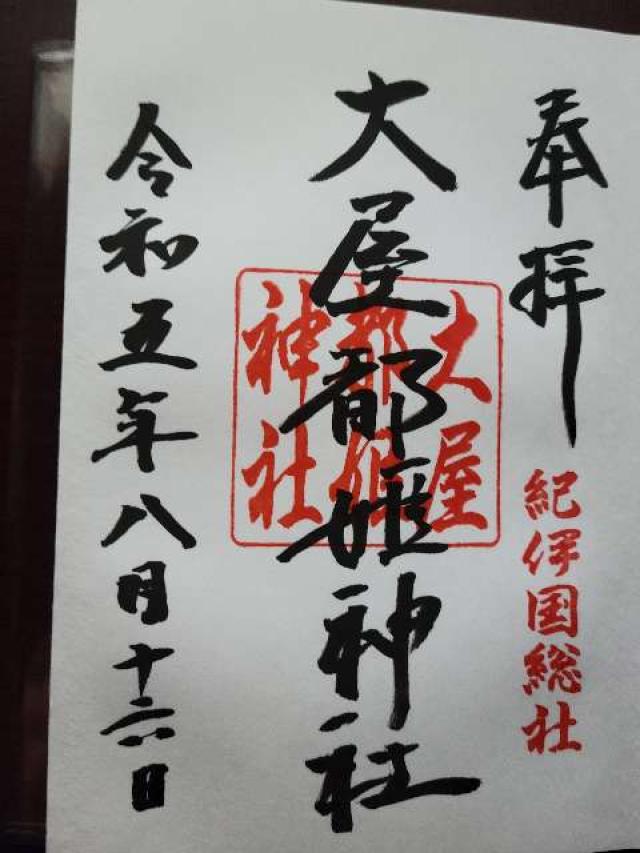 奉拝
紀伊国総社
大屋都姫神社
大屋
都姫
神社
令和五年八月十六日